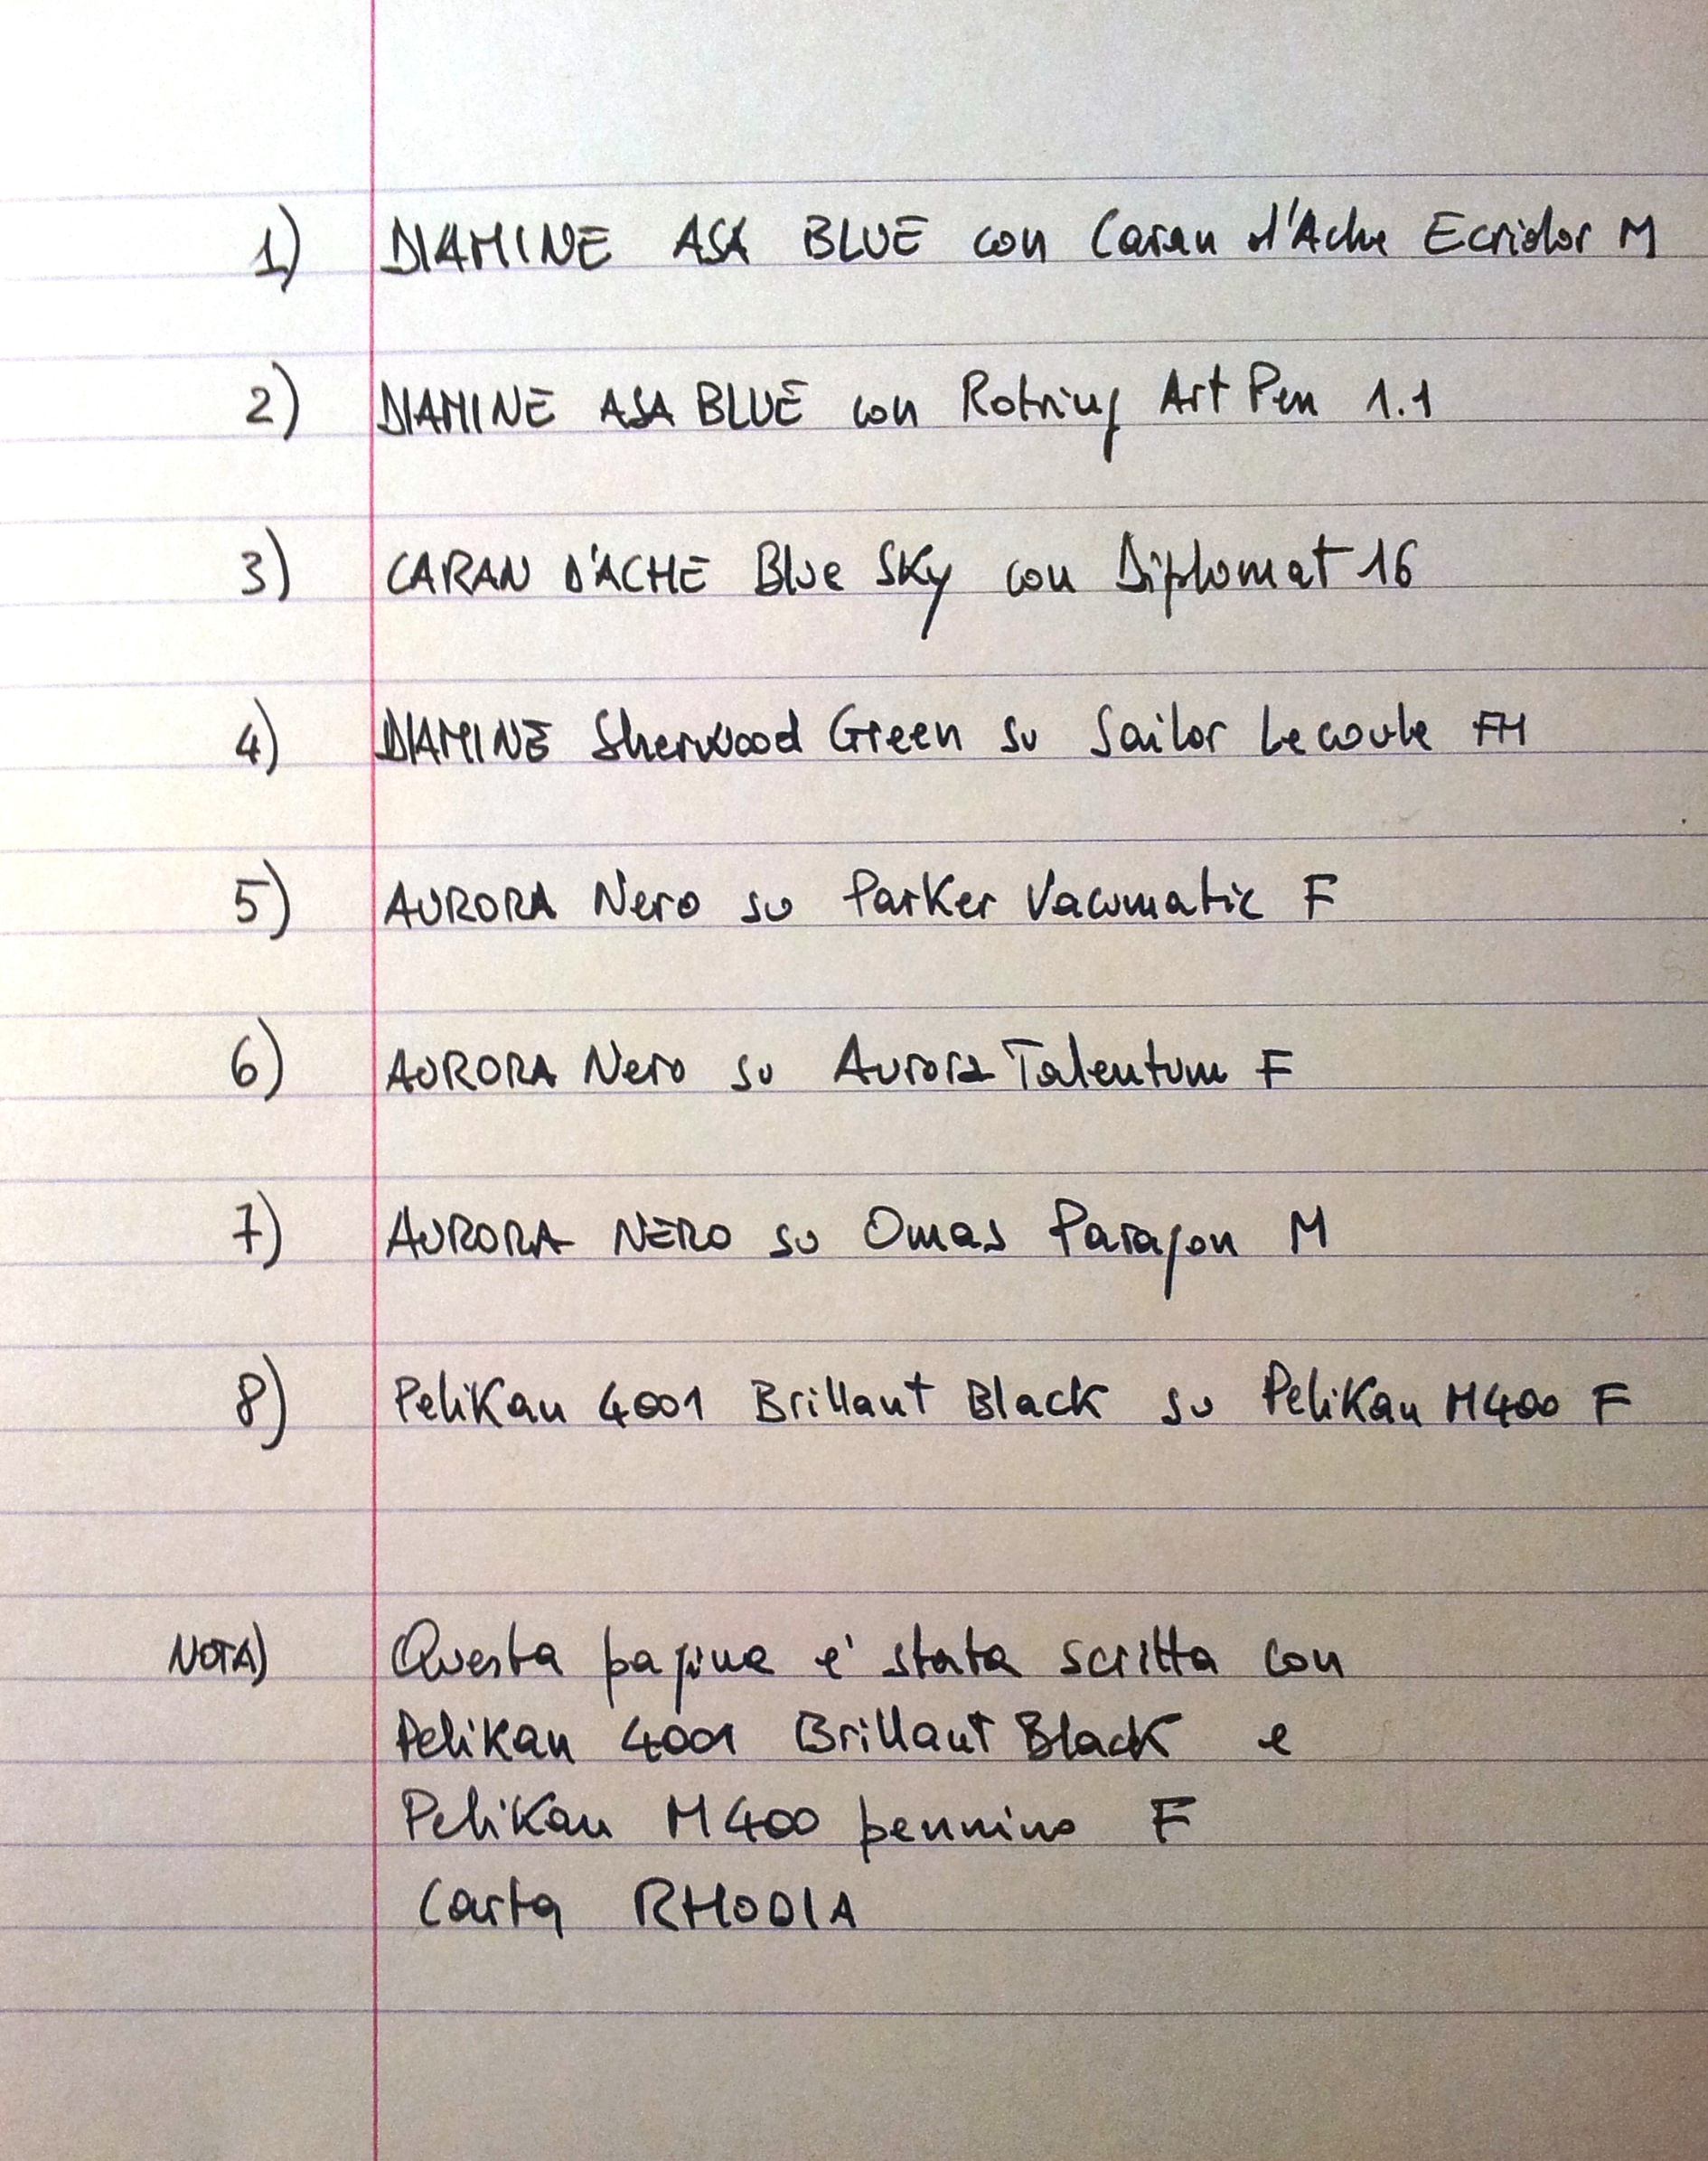 1) DIAMINE ASA BLUE con Caran d'Ache Ecridor M
2) DIAMINE ASA BLUE con Rotring Art Pen 1.1
3) CARAN D'ACHE Blue Sky con Diplomat 16
4) DIAMINE Sherwood Green su Sailor Lecoule FM
5) AURORA Nero su Parker Vacumatic F
6) AURORA Nero su Aurora Talentum F
7) AURORA NERO su Omas Paragon M
8) Pelikan 4001 Brillant Black su Pelikan M400 F
NOTA) Questa pagina e' stata scritta con
Pelikan 4001 Brillant Black e
Pelikan M400 pennino F
Carta RHODIA